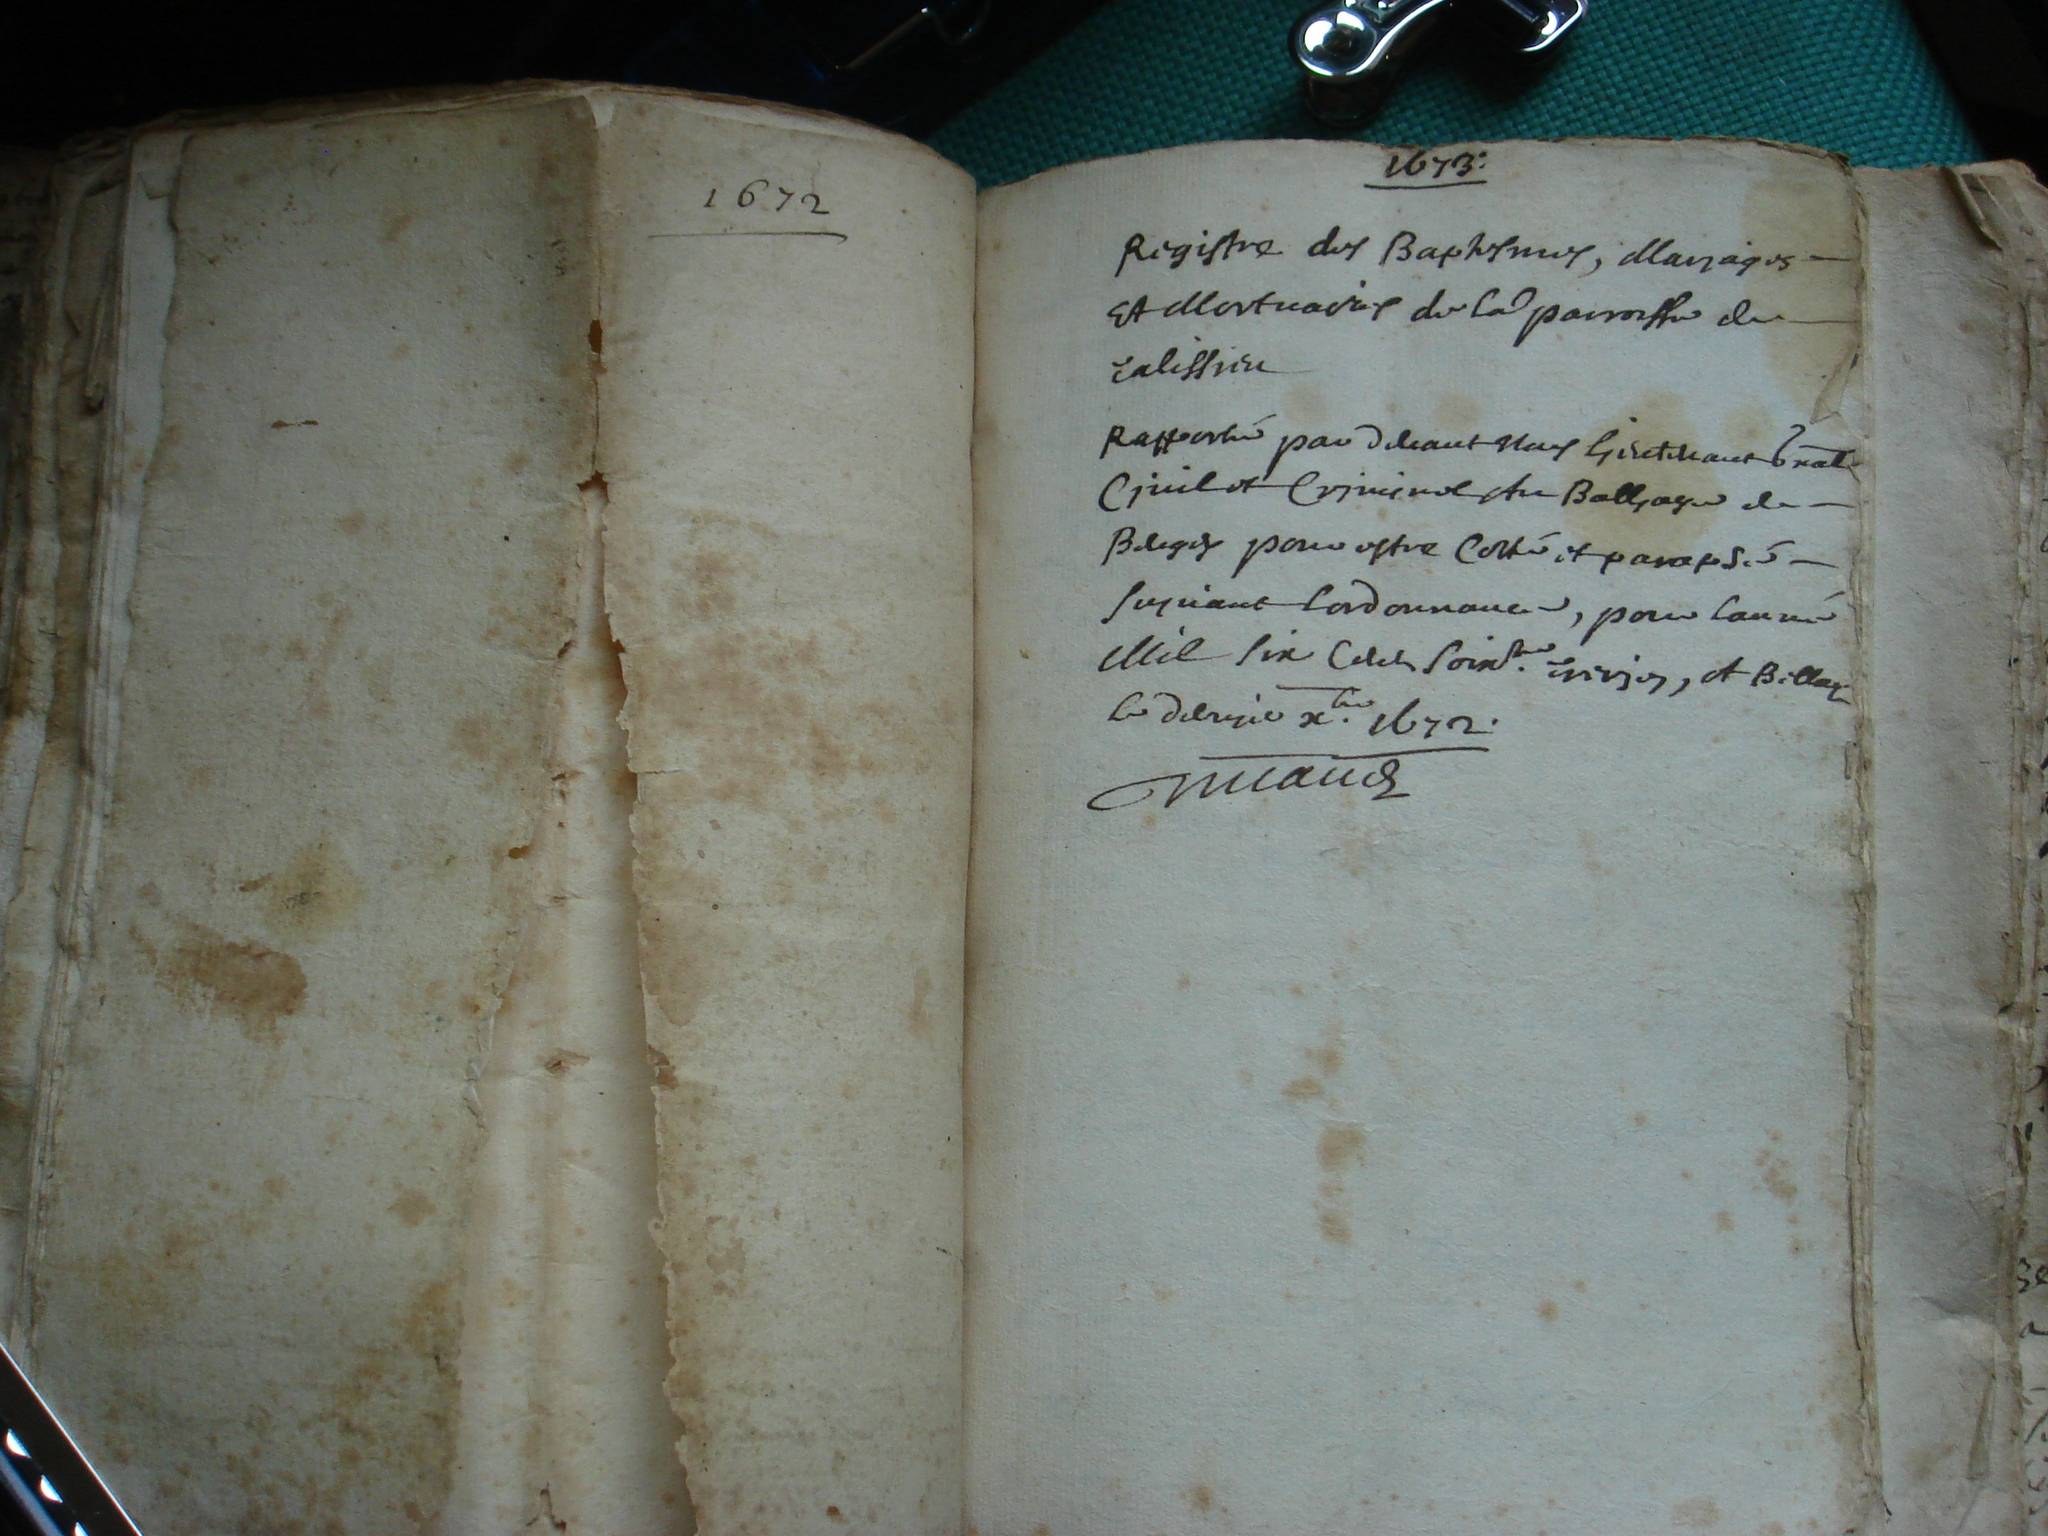 1672
1673:
Registre des Baptesmes, Mariages
Et Mortuaires de la parroisse de
Talissieu
Rapporté par devant Nous Lieutenant gnal
Civil et Criminel au Balliage de
Beugey pour estre Cotté et paraphé
suyvant Lordonnance, pour Lannée
Mil six Cents soixte treize, et Belley
le xbre 1672.